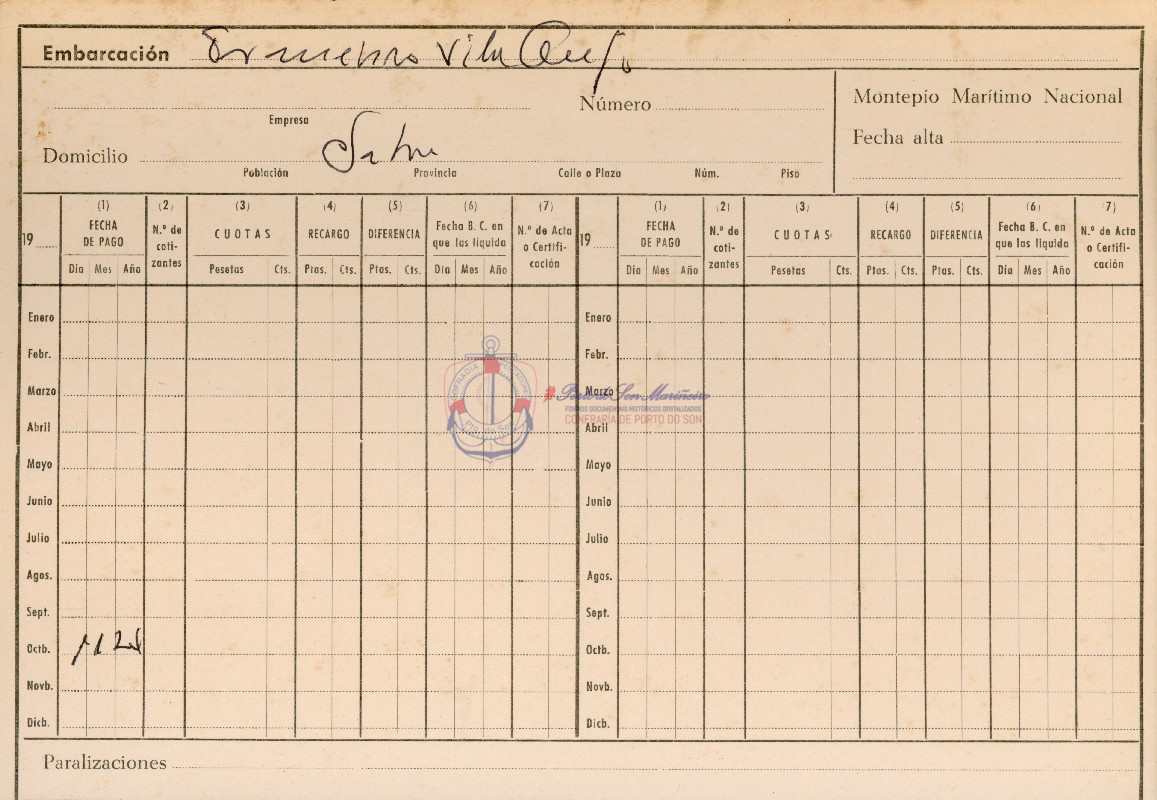 Embarcación
Número
Montepío Marítimo Nacional
Empresa
Fecha alta
Domicilio
Población Provincia Calle o Plaza Núm. Piso
(1) (2) (3) (4) (5) (6) (7) (1) (2) (3) (4) (5) (6) 7)
19 FECHA DE PAGO N.º de coti-zantes CUOTAS RECARGO DIFERENCIA Fecha B. C. en que las liquida N.º de Acta o Certifi-cación 19 FECHA DE PAGO N.º de coti-zantes CUOTAS RECARGO DIFERENCIA Fecha B. C. en que las liquida N.º de Acta o Certifi-cación
Día Mes Año Pesetas Cts. Ptas. Cts. Ptas. Cts. Día Mes Año Día Mes Año Pesetas Cts. Ptas. Cts. Ptas. Cts. Día Mes Año
Enero Enero
Febr. Febr.
Marzo Marzo
Abril Abril
Mayo Mayo
Junio Junio
Julio Julio
Agos. Agos.
Sept. Sept.
Octb. Octb.
Novb. Novb.
Dicb. Dicb.
Paralizaciones
Porto do Son Mariñeiro
FONDOS DOCUMENTAIS HISTÓRICOS DIXITALIZADOS
CONFRARÍA DE PORTO DO SON